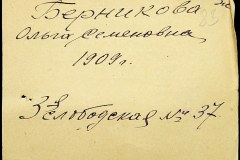 Берникова
Ольга Семеновна
1909 г.
3я Слободская № 37